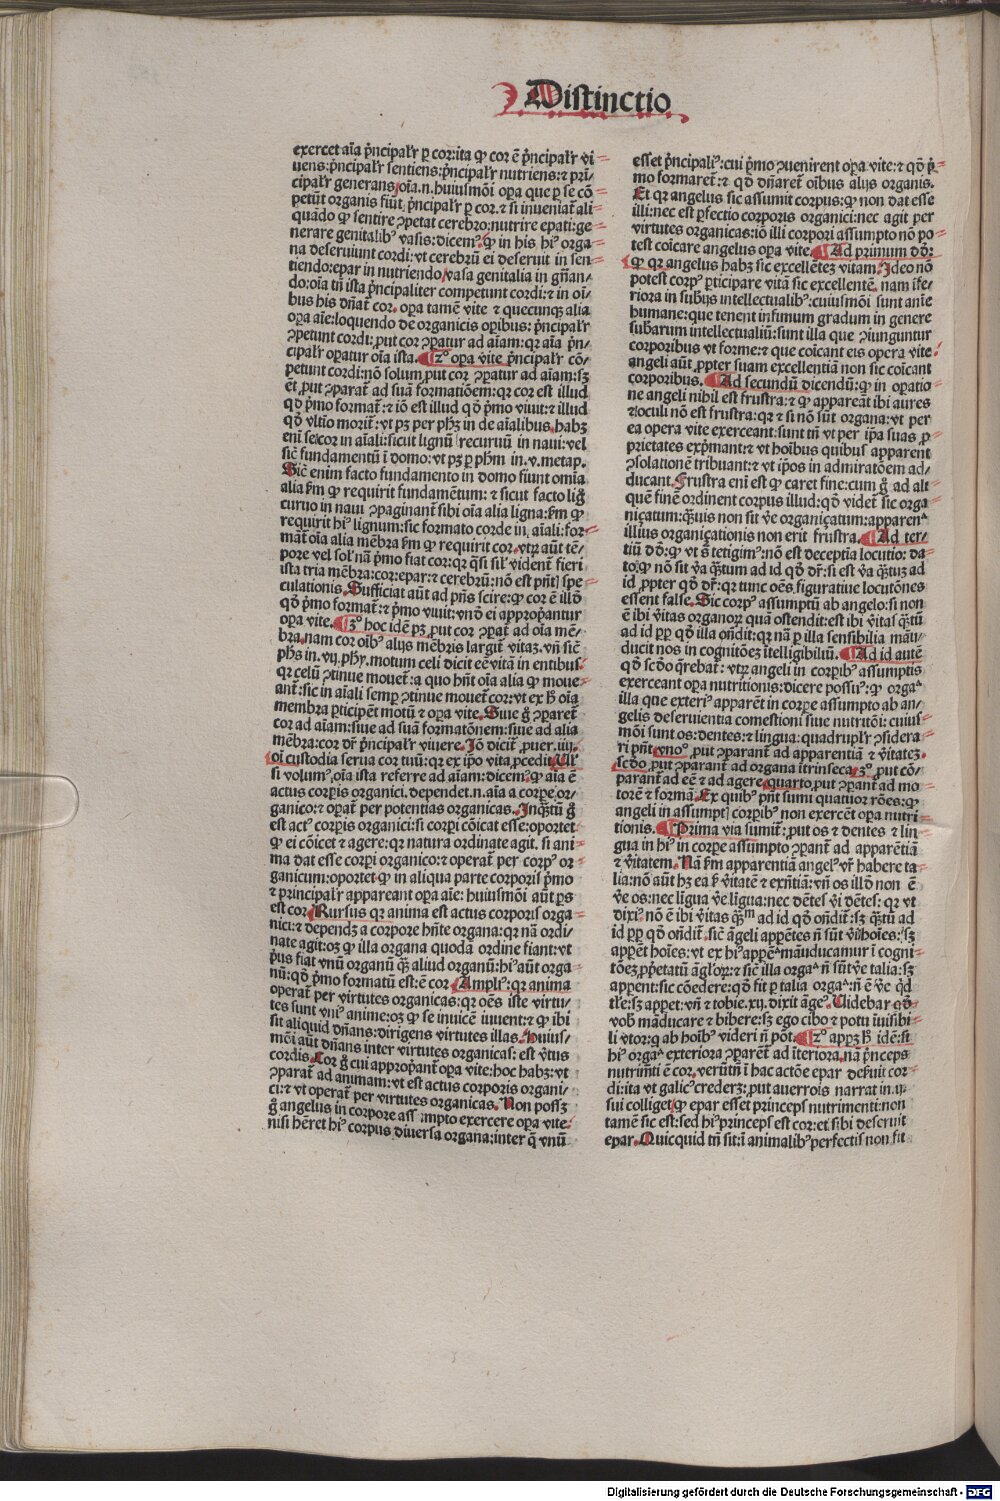 Distinctio
exercet aīa pͥncipalr̄ ꝑ cor:ita ꝙ cor ē pͥncipalr̄ vi
uens:pͥncipalr̄ sentiens:pͥncipalr̄ nutriens:⁊ pri/
cipalr̄ generans/oīa.n.huiusmōi oꝑa que ꝑ se cō
petūt organis fiūt pͥncipalr̄ ꝑ cor.⁊ si inueniat̄ ali
quādo ꝙ sentire ꝯpetat cerebro:nutrire epati:ge
nerare genitalibꝰ vasis:dicemꝰ ꝙ in his hiꝰ orga
na deseruiunt cordi:vt cerebrū ei deseruit in sen
tiendo:epar in nutriendo/vasa genitalia in gn̄an/
do:oīa tn̄ ista pͥncipaliter competunt cordi:⁊ in oī/
bus his dn̄at̄ cor. oꝑa tamē vite ⁊ quecunqꝫ alia
oꝑa aīe:loquendo de organicis oꝑibus: pͥncipalr̄
ꝯpetunt cordi:ꝓut cor ꝯꝑatur ad aīam:qꝛ aīa pͥn/
cipalr̄ oꝑatur oīa ista. ¶2º oꝑa vite pͥncipalr̄ cō/
petunt cordi:nō solum ꝓut cor ꝯꝑatur ad aīam:sꝫ
ēt ꝓut ꝯparat̄ ad suā formatiōem:qꝛ cor est illud
qd̄ pͥmo format̄:⁊ iō est illud qd̄ pͥmo viuit:⁊ illud
qd̄ vltīo morit̄:vt pꝫ per ph̄ꝫ in de aīalibus.habꝫ
enī se cor in aīali:sicut lignū recuruū in naui:vel
sic̄ fundamentū ī domo:vt pꝫ ꝑ ph̄m in.v.metap.
Sic̄ enim facto fundamento in domo fiunt omīa
alia ẜm ꝙ requirit fundamētum: ⁊ sicut facto lig̊
curuo in naui ꝯpaginant̄ sibi oīa alia ligna:ẜm ꝙ
requirit hiꝰ lignum:sic formato corde in aīali:for
mat̄ oīa alia mēbra ẜm ꝙ requirit cor.vtꝝ aūt tē/
pore vel sol̄ nā pͥmo fiat cor:qꝛ q̄si sil̄ vident̄ fieri
ista tria mēbra:cor:epar:⁊ cerebrū:nō est pn̄tꝭ spe
culationis.Sufficiat aūt ad pn̄s scire:ꝙ cor ē illd̄
qd̄ pͥmo format̄:⁊ pͥmo viuit:vn̄ō ei appropͥantur
oꝑa vite.¶3º hoc idē pꝫ ꝓut cor ꝯꝑat̄ ad oīa mē/
bra.nam cor oībꝰ alijs mēbris largit̄ vitaꝫ.vn̄ sic̄
ph̄s in.vij.phy.motum celi dicit eē vitā in entibus
qꝛ celū ꝯtinue mouet̄:a quo hn̄t oīa alia ꝙ moue
ant̄:sic in aīali semꝑ ꝯtinue mouet̄ cor:vt ex h̊ oīa
membra ꝑticipēt motū ⁊ oꝑa vite.Siue g̊ ꝯparet̄
cor ad aīam:siue ad suā formatōnem:siue ad alia
mēbra:cor dr̄ pͥncipalr̄ viuere.Iō dicit̄ ꝓuer.iiij.
oī custodia serua cor tuū:qꝛ ex ipō vita ꝓcedit.Ul̄
si volumꝰ oīa ista referre ad aīam:dicemꝰ ꝙ aīa ē
actus corꝑis organici.dependet.n.aīa a corꝑe or/
ganico:⁊ oꝑat̄ per potentias organicas.Inqͣtū g̊
est actꝰ corꝑis organici:si corꝑi cōicat esse:oportet
ꝙ ei cōicet ⁊ agere:qꝛ natura ordinate agit. si ani
ma dat esse corꝑi organico:⁊ operat̄ per corpꝰ or
ganicum:oportet ꝙ in aliqua parte corporis pͥmo
⁊ principalr̄ appareant oꝑa aīe: huiusmōi aūt ꝑs
est cor.Rursus qꝛ anima est actus corporis orga
nici:⁊ dependꝫ a corpore hn̄te organa:qꝛ nā ordi/
nate agit:oꝫ ꝙ illa organa quodā ordine fiant:vt
pͥus fiat vnū organū qͣꝫ aliud organū:hiꝰ aūt orga
nū:qd̄ pͥmo formatū est:ē cor Ampliꝰ:qꝛ anima
operat̄ per virtutes organicas:qꝛ oēs iste virtu/
tes sunt vniꝰ anime:oꝫ ꝙ se inuicē iuuent:⁊ ꝙ ibi
sit aliquid dn̄ans:dirigens virtutes illas.huius/
mōi aūt dn̄ans inter virtutes organicas: est v̄tus
cordis.Cor g̊ cui appropͥant̄ oꝑa vite:hoc habꝫ:vt
ꝯparat̄ ad animam:vt est actus corporis organi/
ci:⁊ vt operat̄ per virtutes organicas.Non possꝫ
g̊ angelus in corpore assumpto exercere oꝑa vite
nisi hēret hiꝰ corpus diuersa organa:inter q̄ vnū
esset pͥncipaliꝰ:cui pͥmo ꝯuenirent oꝑa vite:⁊ qd̄ pͥ/
mo formaret̄:⁊ qd̄ dn̄aret̄ oībus alijs organis.
Et qꝛ angelus sic assumit corpus:ꝙ non dat esse
illi:nec est ꝑfectio corporis organici:nec agit per
virtutes organicas:iō illi corpori assumpto nō po
test cōicare angelus oꝑa vite.¶Ad primum dd̄ꝫ
ꝙ qꝛ angelus habꝫ sic excellēteꝫ vitam.Ideo nō
potest corpꝰ ꝑticipare vitā sic excellentē. nam īfe/
riora in subijs intellectualibꝰ:cuiusmōi sunt anīe
humane:que tenent infimum gradum in genere
subarum intellectualiū:sunt illa que ꝯiunguntur
corporibus vt forme:⁊ que cōicant eis opera vite
angeli aūt ꝓpter suam excellentiā non sic cōicant
corporibus. ¶Ad secundū dicendū:ꝙ in oꝑatio
ne angeli nihil est frustra:⁊ ꝙ appareāt ibi aures
⁊ oculi nō est frustra:qꝛ ⁊ si nō sūt organa:vt per
ea opera vite exerceant:sunt tn̄ vt per ip̄a suas ꝓ
prietates exꝑmant:⁊ vt hoībus quibus apparent
ꝯsolationē tribuant:⁊ vt ip̄os in admiratōem ad/
ducant.Frustra enī est ꝙ caret fine:cum g̊ ad ali
quē finē ordinent corpus illud:qd̄ videt̄ sic orga
nicatum:qͣuis non sit v̄e organicatum:apparen
illius organicationis non erit frustra.¶Ad ter/
tiū dd̄:ꝙ vt s̄ tetigimꝰ:nō est deceptīa locutio: da
to ꝙ nō sit v̄a qͣtum ad id qd̄ dr̄:si est v̄a qͣtuꝫ ad
id ꝓpter qd̄ dr̄:qꝛ tunc oēs figuratiue locutōnes
essent false.Sic corpꝰ assumptū ab angelo:si non
ē ibi v̄itas organoꝝ quā ostendit:est ibi v̄itas qͣtū
ad id ꝓꝑ qd̄ illa on̄dit:qꝛ nā ꝑ illa sensibilia māu/
ducit nos in cognitōeꝫ ītelligibiliū.¶Ad id autē
qd̄ scd̄o q̄rebat̄: vtꝝ angeli in corꝑibꝰ assumptis
exerceant oꝑa nutritionis:dicere possumꝰ:ꝙ orga
illa que exteriꝰ apparēt in corꝑe assumpto ab an/
gelis deseruientia comestioni siue nutritōi: cuius
mōi sunt os:dentes:⁊ lingua: quadruplr̄ ꝯsidera
ri pn̄t.vnoº ꝓut ꝯparant̄ ad apparentiā ⁊ v̄itateꝫ.
scd̄o ꝓut ꝯparant̄ ad organa ītrinseca.3º ꝓut cō/
parant̄ ad eē ⁊ ad agere.quarto ꝓut ꝯꝑant̄ ad mo
torē ⁊ formā.Ex quibꝰ pn̄t sumi quatuor rōes:ꝙ
angeli in assumptꝭ corꝑibꝰ non exercēt oꝑa nutri
tionis.¶Prima via sumit̄:ꝓut os ⁊ dentes ⁊ lin
gua in hiꝰ in corꝑe assumpto ꝯꝑant̄ ad apparētiā
⁊ v̄itatem.Nā ẜm apparentiā angelꝰ vr̄ habere ta
lia:nō aūt hꝫ ea ẜ v̄itatē ⁊ exn̄tiā:vn̄ os illd̄ non ē
v̄e os:nec līgua v̄e līgua:nec dētes v̄i dētes: qꝛ vt
dixiꝰ nō ē ibi v̄itas qͣꝫtm ad id qd̄ on̄dit̄:sꝫ qͣtū ad
id ꝓꝑ qd̄ on̄dit̄ sic̄ āgeli apꝑētes n̄ sūt v̄i hoīes:sꝫ
apꝑēt hoīes:vt ex hiꝰ apꝑē māuducamur ī cogni
tōeꝫ ꝓpͥetatū āgl̄oꝝ:⁊ sic̄ illa orga n̄ sūt v̄e talia:sꝫ
appent:sic cōedere:qd̄ fit ꝑ talia orga:n̄ ē v̄e qd̄
tl̄e:sꝫ apꝑet:vn̄ ⁊ tobie.xij.dixit āgeꝰ.Uidebar qd̄
vob̄ māducare ⁊ bibere:sꝫ ego cibo ⁊ potu īuisibi
li vtor:q̄ ab hoībꝰ videri n̄ pōt.¶2º apꝑꝫ h̊ idē:si
hiꝰ orga exteriora ꝯparēt̄ ad īteriora.nā pͥnceps
nutrimīti ē cor.verūtn̄ ī hac actōe epar deẜuit cor
di:ita vt galicꝰ crederꝫ:ꝓut auerrois narrat in.ij.
sui colliget/ꝙ epar esset princeps nutrimenti:non
tamē sic est:sed hiꝰ princeps est cor:et sibi deseruit
epar.Quicquid tn̄ sit:ī animalibꝰ perfectis non fit
Digitalisierung gefördert durch die Deutsche Forschungsgemeinschaft - DFG